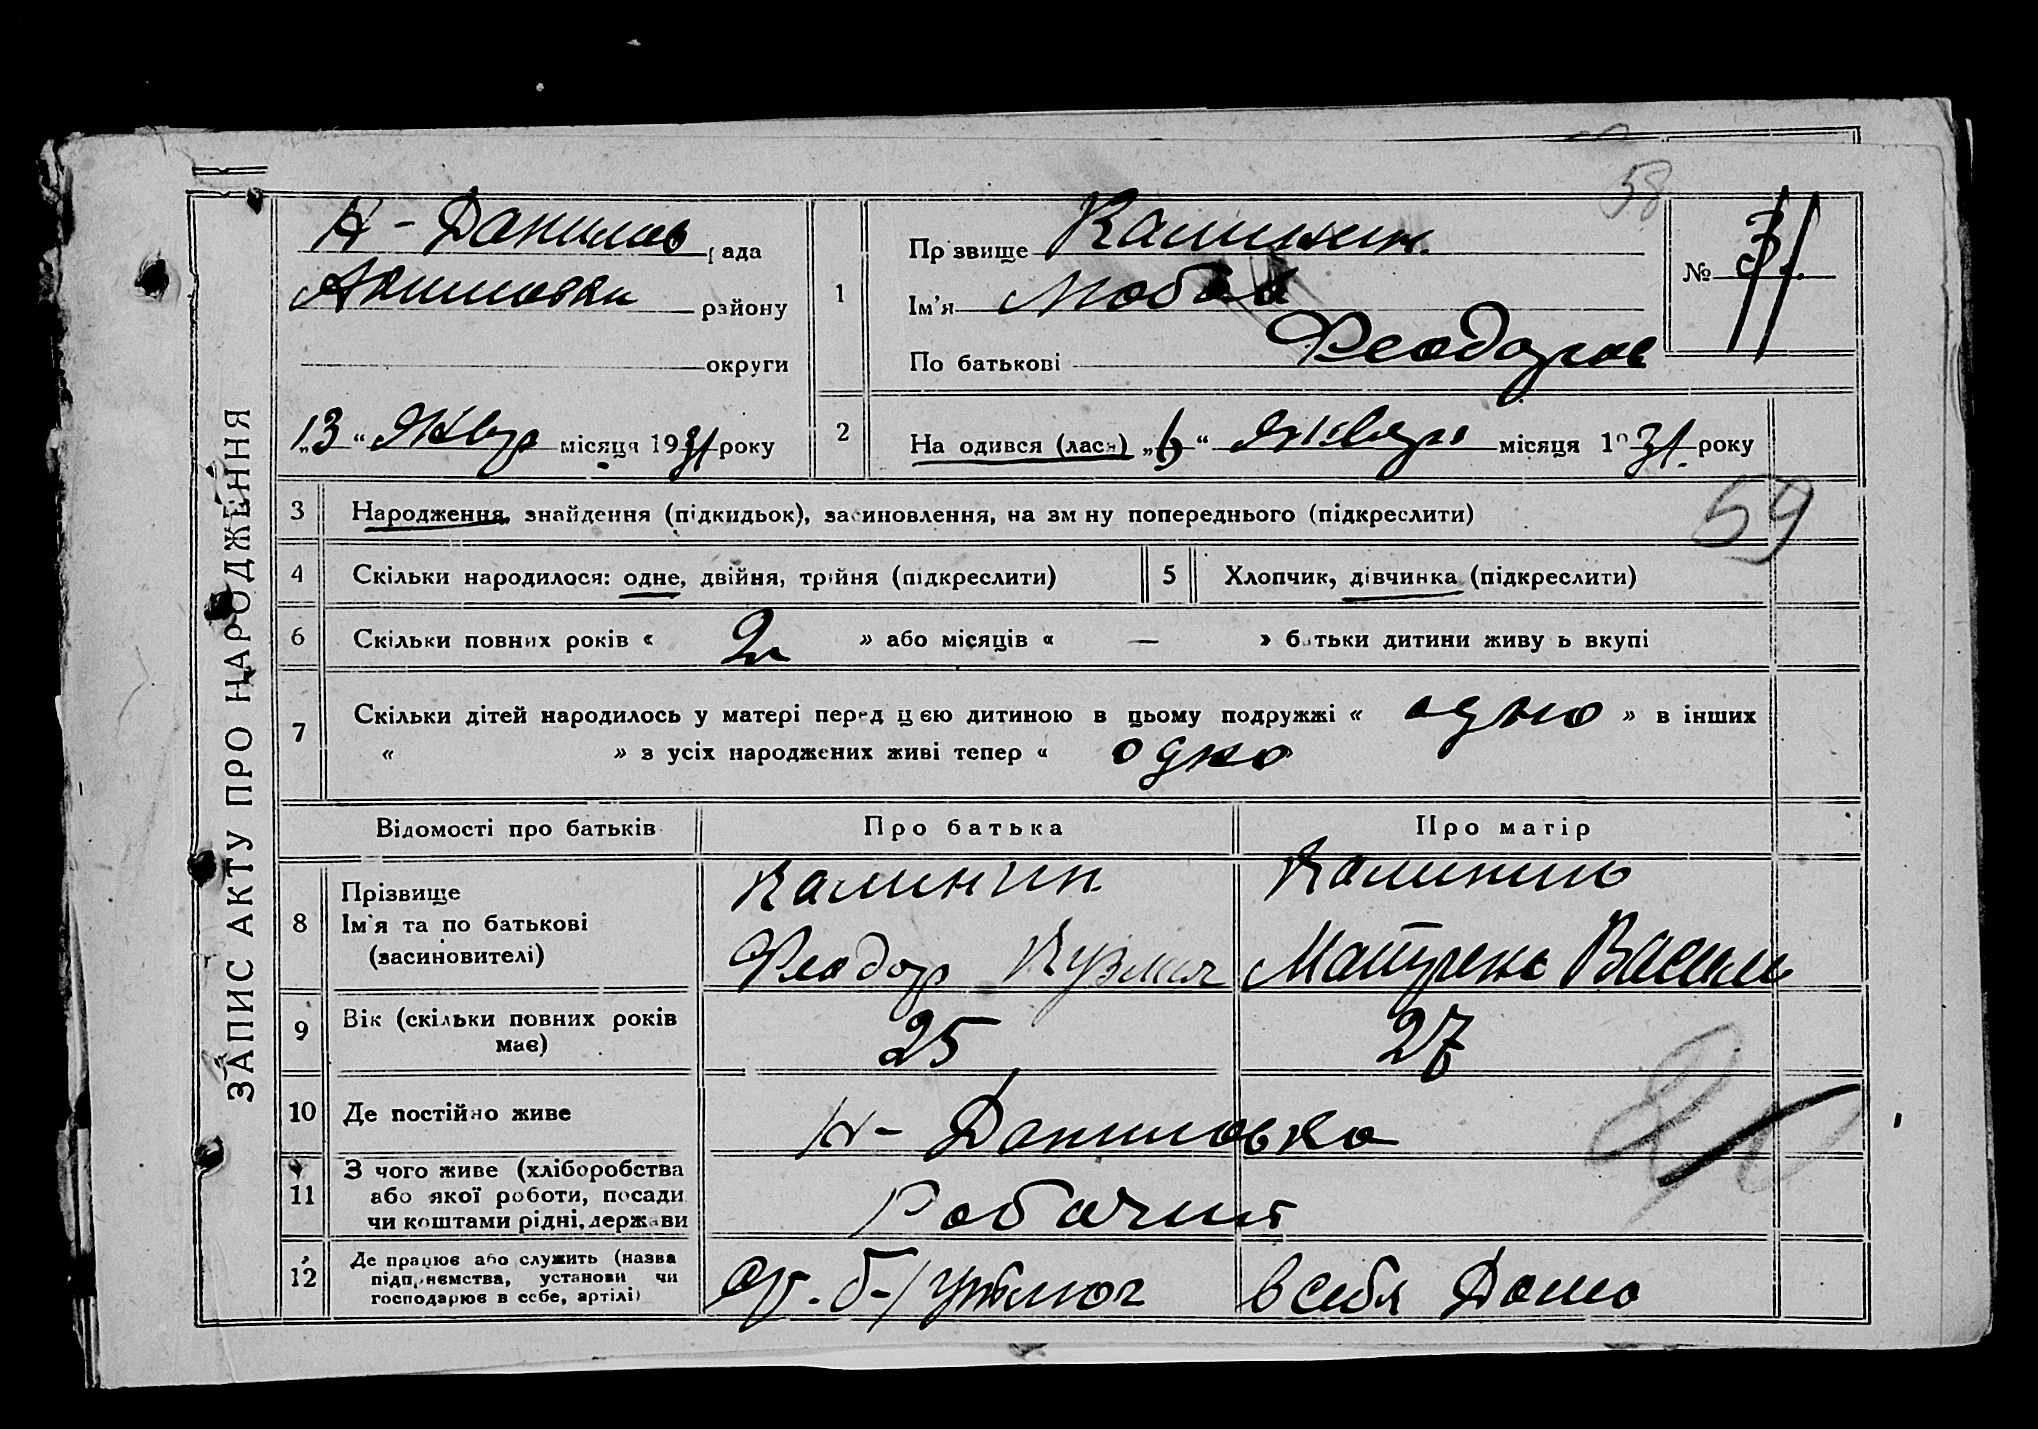 58
ЗАПИС АКТУ ПРО НАРОДЖЕННЯ
Н-Данилов рада
району
округи
"13" Январ місяця 1931 року
1
Прізвище Калинин
Ім'я Любов
По батькові Феодоров
№ 31
2 Народився (лася) "6" Январ місяця 1931 року
59
3 Народження, знайдення (підкидьок), засиновлення, на зміну попереднього (підкреслити)
4 Скільки народилося: одне, двійня, трійня (підкреслити)
5 Хлопчик, дівчинка (підкреслити)
6 Скільки повних років « 2 » або місяців « — » батьки дитини живуть вкупі
7 Скільки дітей народилось у матері перед цією дитиною в цьому подружжі « одно » в інших
« » з усіх народжених живі тепер « одно
Відомості про батьків Про батька Про матір
8 Прізвище
Ім'я та по батькові
(засиновителі)
Калинин
Феодор Кузмич
Калинин
Матрена Васил
9 Вік (скільки повних років має) 25 27
10 Де постійно живе Н-Даниловка
11 З чого живе (хліборобства
або якої роботи, посади
чи коштами рідні, держави
Робочий
12 Де працює або служить (назва
підприємства, установи чи
господарює в себе, артілі)
в себя Дома